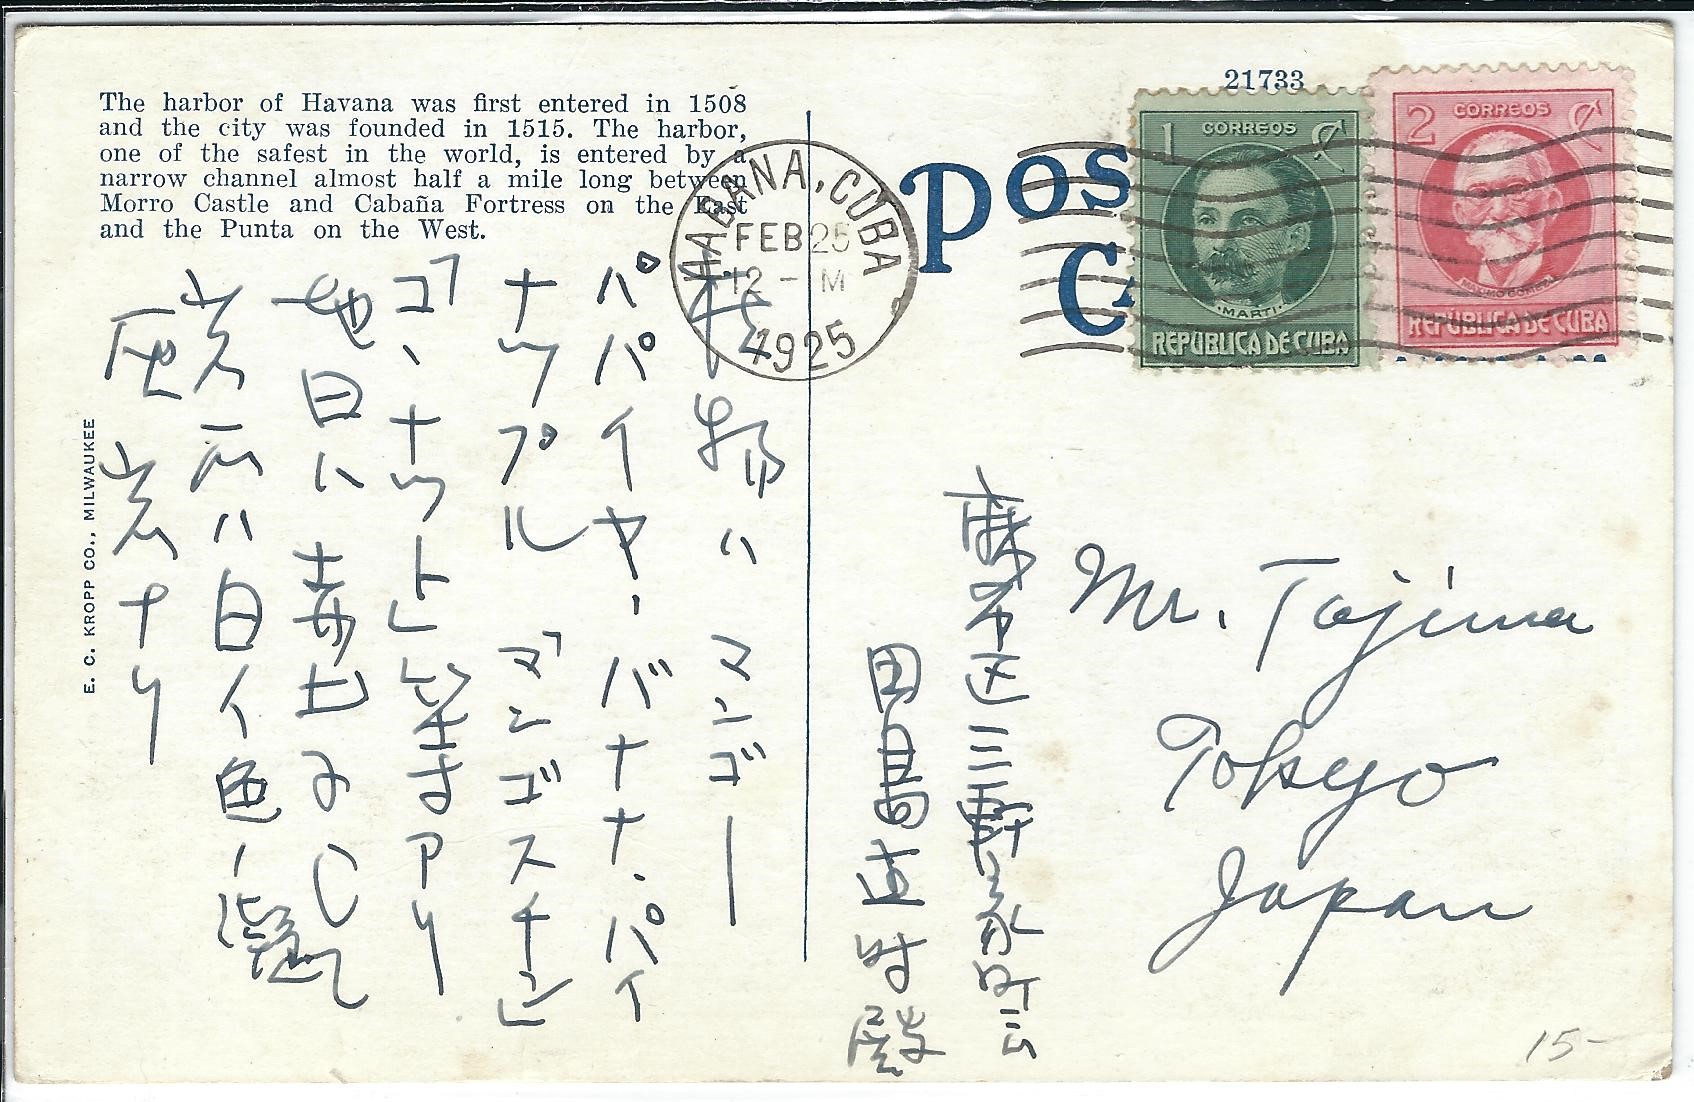 The harbor of Havana was first entered in 1508
and the city was founded in 1515. The harbor,
one of the safest in the world, is entered by a
narrow channel almost half a mile long between
Morro Castle and Cabaña Fortress on the East
and the Punta on the West.
E. C. KROPP CO., MILWAUKEE
HABANA, CUBA
FEB 25
12 - M
1925
21733
POS
C
1 CORREOS
MARTI
REPUBLICA DE CUBA
2 CORREOS
MAXIMO GOMEZ
REPÚBLICA DE CUBA
ハ マンゴー
パパイヤ・バナナ・パイ
ナップル 「マンゴスチン」
「コヽナット」等アリ
地日ハ
岩石ハ白イ色ノ
灰岩ナリ
Mr. Tajima
Tokyo
Japan
麻布区三軒家町三
田島 殿
15-